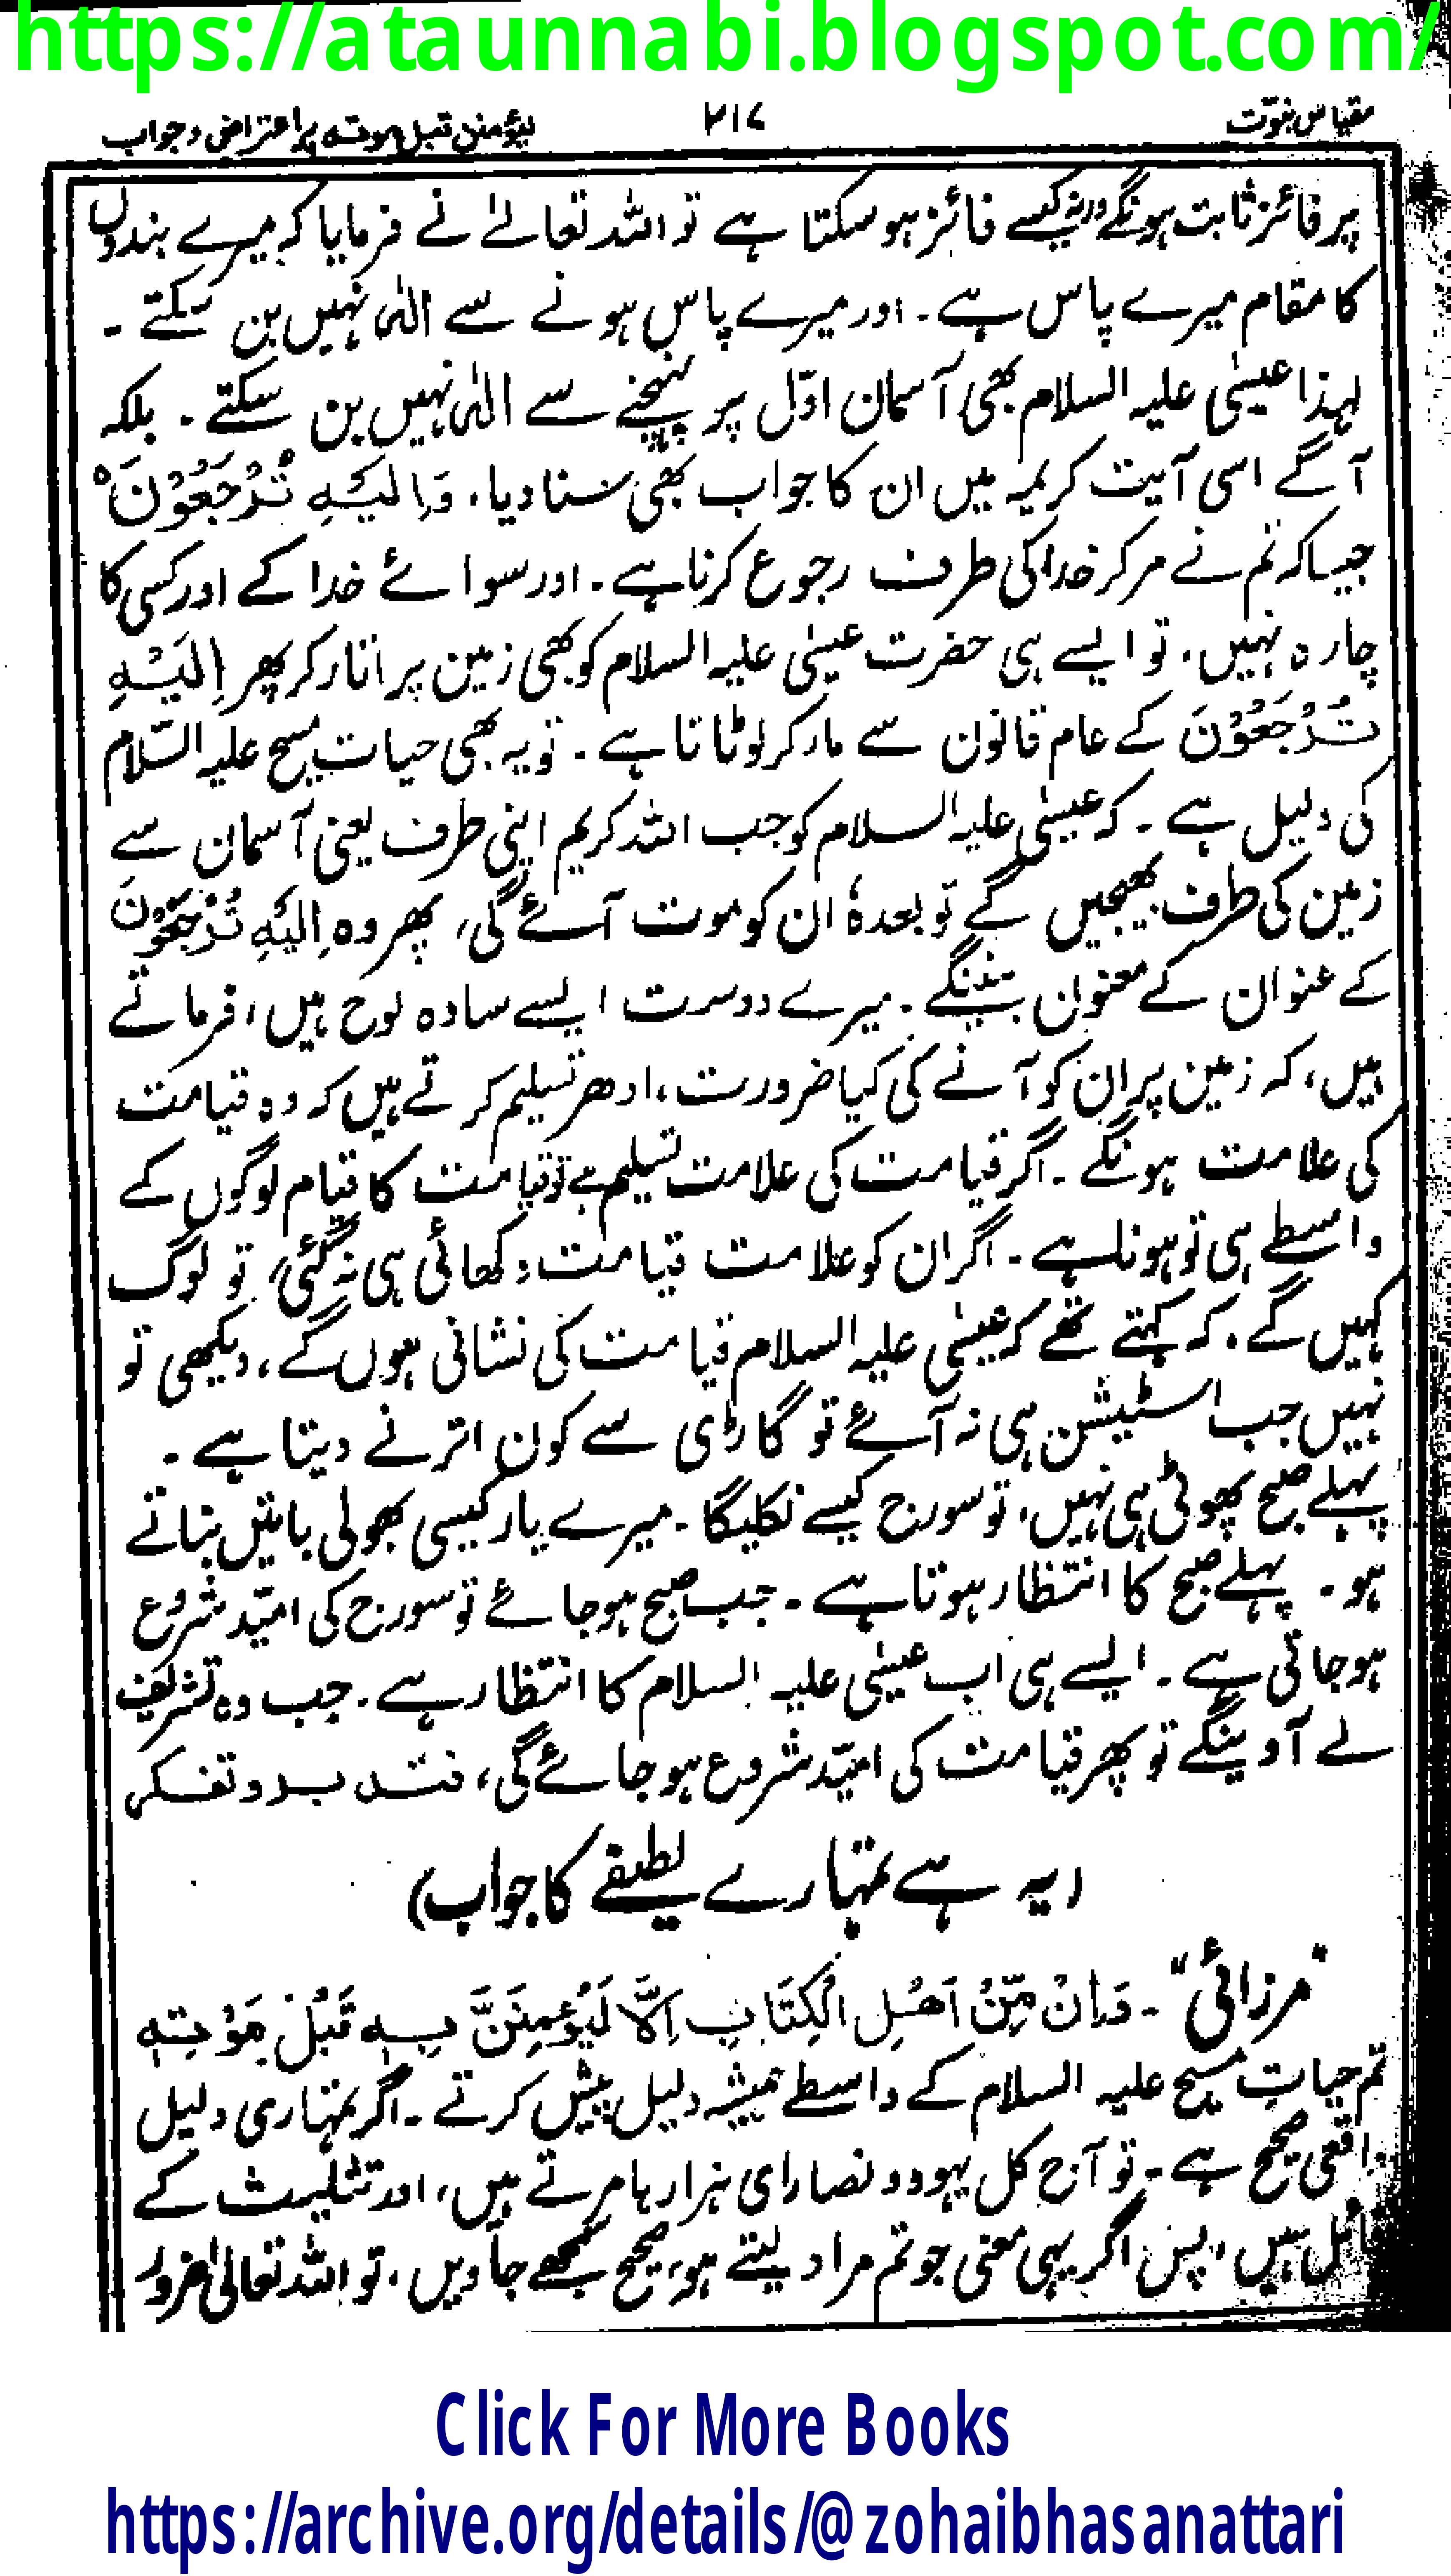 https://ataunnabi.blogspot.com/
مقیاس نبوّت ۲۱۷ لیؤمنن قبل موتہ پر اعتراض و جواب
پر فائز ثابت ہونگے ورنہ کیسے فائز ہو سکتا ہے تو اللہ تعالےٰ نے فرمایا کہ میرے بندوں
کا مقام میرے پاس ہے۔ اور میرے پاس ہونے سے الٰہ نہیں بن سکتے۔
لہذا عیسیٰ علیہ السلام بھی آسمان اوّل پر پہنچنے سے الٰہ نہیں بن سکتے۔ بلکہ
آگے اسی آیت کریمہ میں ان کا جواب بھی سنا دیا، وَاِلَیْہِ تُرْجَعُوْنَ ہ
جیسا کہ تم نے مر کر خدا کی طرف رجوع کرنا ہے۔ اور سوائے خدا کے اور کسی کا
چارہ نہیں، تو ایسے ہی حضرت عیسیٰ علیہ السلام کو بھی زمین پر اتار کر پھر اِلَیْہِ
تُرْجَعُوْنَ کے عام قانون سے مار کر لوٹاتا ہے۔ تو یہ بھی حیات مسیح علیہ السّلام
کی دلیل ہے۔ کہ عیسیٰ علیہ السلام کو جب اللہ کریم اپنی طرف یعنی آسمان سے
زمین کی طرف بھیجیں گے تو بعدہٗ ان کو موت آئے گی، پھر وہ اِلَیْہِ تُرْجَعُوْنَ
کے عنوان کے معنون بنینگے۔ میرے دوست ایسے سادہ لوح ہیں، فرماتے
ہیں، کہ زمین پر ان کو آنے کی کیا ضرورت، ادھر تسلیم کرتے ہیں کہ وہ قیامت
کی علامت ہونگے۔ اگر قیامت کی علامت تسلیم ہے تو قیامت کا قیام لوگوں کے
واسطے ہی تو ہونا ہے۔ اگر ان کو علامت قیامت دکھائی ہی نہ گئی، تو لوگ
کہیں گے، کہ کہتے تھے کہ عیسیٰ علیہ السلام قیامت کی نشانی ہوں گے، دیکھی تو
نہیں جب اسٹیشن ہی نہ آئے تو گاڑی سے کون اترنے دیتا ہے۔
پہلے صبح پھوٹی ہی نہیں، تو سورج کیسے نکلیگا۔ میرے یار کیسی بھولی باتیں بناتے
ہو۔ پہلے صبح کا انتظار ہوتا ہے۔ جب صبح ہو جائے تو سورج کی امیّد شروع
ہو جاتی ہے۔ ایسے ہی اب عیسیٰ علیہ السلام کا انتظار ہے۔ جب وہ تشریف
لے آوینگے تو پھر قیامت کی امیّد شروع ہو جائے گی، فتدبر و تفکر
(یہ ہے تمہارے لطیفے کا جواب)
"مرزائی"۔ وَاِنْ مِّنْ اَھْلِ الْکِتَابِ اِلَّا لَیُؤْمِنَنَّ بِہٖ قَبْلَ مَوْتِہٖ
تم حیاتِ مسیح علیہ السلام کے واسطے ہمیشہ دلیل پیش کرتے۔ اگر تمہاری دلیل
واقعی صحیح ہے۔ تو آج کل یہود و نصارای ہزار ہا مرتے ہیں، اور تثلیث کے
ہیں، پس اگر یہی معنی جو تم مراد لیتے ہو، صحیح سمجھے جاویں، تو اللہ تعالیٰ ضرور
Click For More Books
https://archive.org/details/@zohaibhasanattari